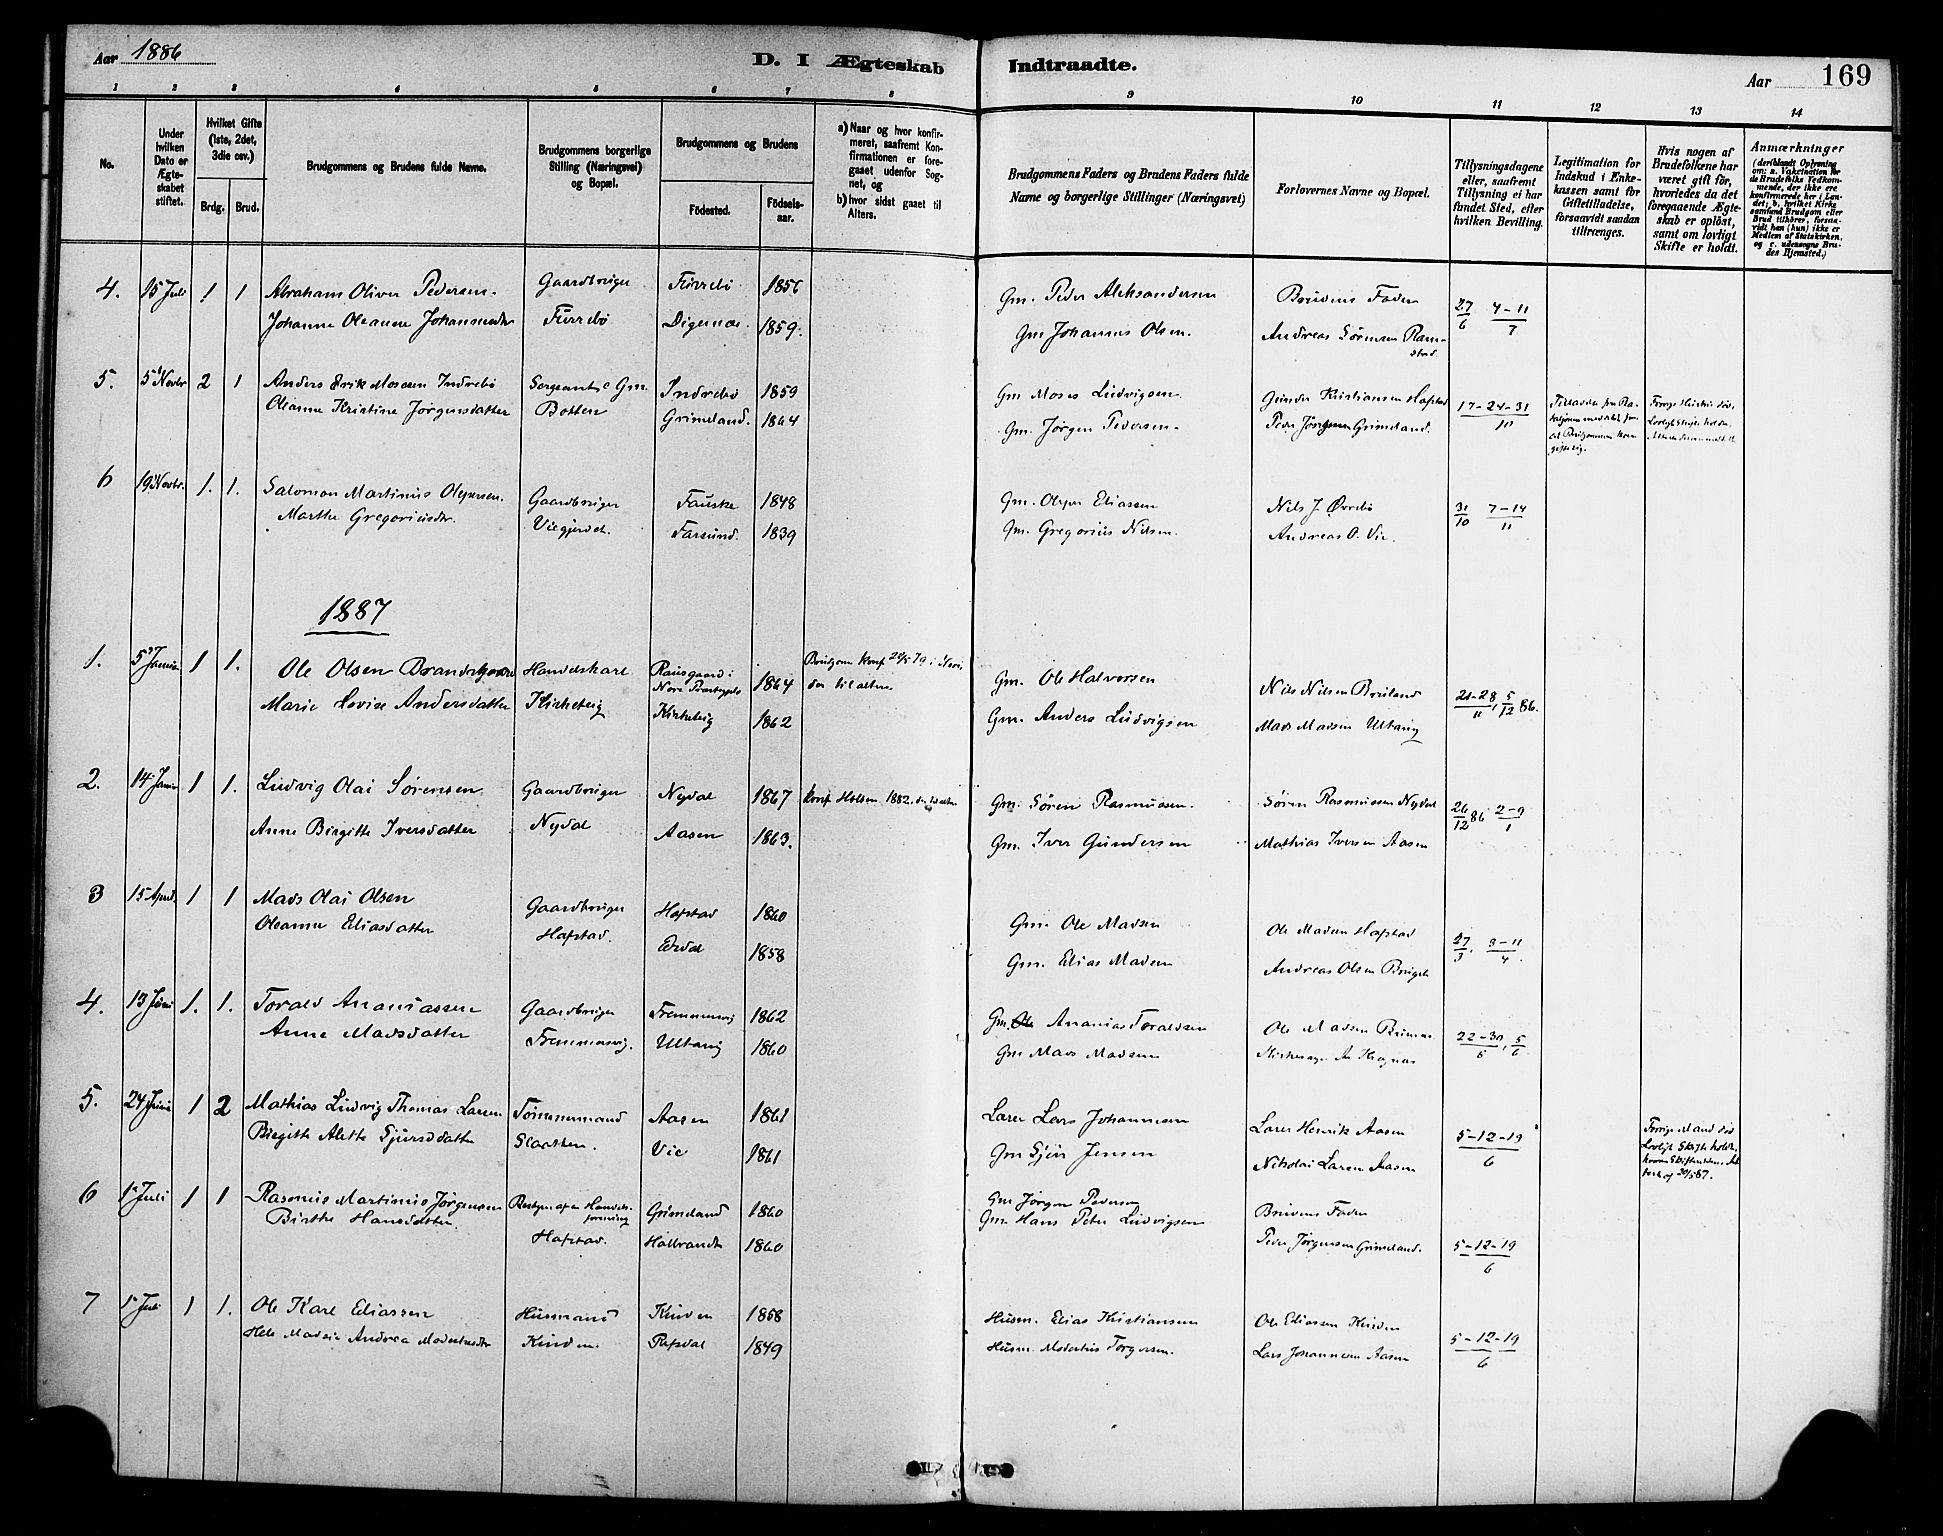 Aar 1886
D. I Ægteskab Indtraadte.
Aar
169
1 2 3 4 5 6 7 8 9 10 11 12 13 14
No.
Under hvilken Dato er Ægteskabet stiftet.
Hvilket Gifte (1ste, 2det, 3die osv.)
Brdg. Brud.
Brudgommens og Brudens fulde Navne.
Brudgommens borgerlige Stilling (Næringsvei) og Bopæl.
Brudgommens og Brudens
Fødested. Fødselsaar.
a) Naar og hvor konfirmeret, saafremt Konfirmationen er foregaaet udenfor Sognet, og
b) hvor sidst gaaet til Alters.
Brudgommens Faders og Brudens Faders fulde Navne og borgerlige Stillinger (Næringsvei)
Forlovernes Navne og Bopæl.
Tillysningsdagene eller, saafremt Tillysning ei har fundet Sted, efter hvilken Bevilling.
Legitimation for Indskud i Enkekassen samt for Giftetilladelse, forsaavidt saadan tiltrænges.
Hvis nogen af Brudefolkene har været gift før, hvorledes da det foregaaende Ægteskab er opløst, samt om lovligt Skifte er holdt.
Anmærkninger
(deriblandt Oplysning om: a. Vakcination for de Brudefolks Vedkommende, der ikke ere konfirmerede her i Landet; b. hvilket Kirkesamfund Brudgom eller Brud tilhører, forsaavidt han (hun) ikke er Medlem af Statskirken, og c. udensogns Brudes Hjemsted.)
4. 15 Juli 1 1 Abraham Oliver Pedersen. Gaardbruger Furrebø 1856 Gm. Peder Aleksandersen Brudens Fader 27/6 4-11/7
Johanne Oleanne Johannesdtr Furrebø Digernæs 1859. Gm Johannes Olsen. Andreas Sørensen Ramstad.
5. 5 Novbr 2 1 Anders Erik Mosesen Indrebø Sergeant & Gm. Indrebø 1859 Gm Moses Ludvigsen. Gunder Kristiansen Hafstad 17-24-31/10
Oleanne Kristine Jørgensdatter Botten Grimeland. 1864 Gm. Jørgen Pedersen. Peder Jørgensen Grimeland.
Forrige Hustru død. Lovligt Skifte holdt.
6 19 Novbr. 1. 1. Salomon Martinus Olsen. Gaardbruger Fauske 1848 Gm. Eliassen Nils J. Øvrebø 31/10 7-14/11
Marthe Gregoriusdtr. Viegjerdet. Farsund. 1839 Gm. Gregorius Nilsen. Andreas O. Vie.
1887
1. 5 Januar 1 1. Ole Olsen Handelskarl 1864 Brudgom konf. i Gm. Ole Halvorsen Nils Nilsen Bruland 21-28/11, 5/12 86.
Marie Lovise Andersdatter Kirketeig Kirketeig 1862 Gm. Anders Ludvigsen Mads Madsen Ultang
2. 14 Januar 1 1. Ludvig Olai Sørensen Gaardbruger Nydal 1867 konf Holsen 1882. Gm: Søren Rasmussen. Søren Rasmussen Nydal 26/12 86 2-9/1
Anne Birgitte Iversdatter Nydal Aasen 1863. Gm. Iver Gundersen Mathias Iversen Aasen
3 15 April 1 1 Mads Olai Olsen Gaardbruger Hafstad 1860 Gm. Ole Madsen Ole Madsen Hafstad 27/3, 3-11/4.
Oleanne Eliasdatter Hafstad. Erdal 1858 Gm. Elias Madsen Andreas Olsen
4. 13 Juni 1. 1. Torald Ananiassen Gaardbruger Fremmersvig 1862 Gm. Ananias Toraldsen Ole Madsen 22-30/5, 5/6.
Anne Madsdatter Fremmersvig. Ultang 1860 Gm Mads Madsen Kirkesanger
5. 24 Juni 1 2 Mathias Ludvig Thomas Larsen Tømmermand Aasen 1861 Lærer Lars Johannesen Lærer Henrik Aasen 5-12-19/6
Birgitte Alette Sjursdatter Slaatten. Vie 1861 Gm Sjur Jensen Nikolai Larsen Aasen
Forrige Mand død Lovligt Skifte holdt,
6 1 Juli 1 1 Rasmus Martinus Jørgensen Bestyrer af en Handelsforening Grimeland 1860 Gm Jørgen Pedersen Brudens Fader
Birthe Hansdatter. Hafstad. Halbrandt 1860 Gm. Hans Peter Ludvigsen Peder Jørgensen Grimeland. 5-12-19/6
7 1 Juli 1 1. Ole Karl Eliassen Husmand Kinden 1858 Husm. Elias Kristiansen Ole Eliassen Kinden 5-12-19/6
Andrea Kinden. Refsdal 1849 Husm. Torgersen. Lars Johannesen Aasen